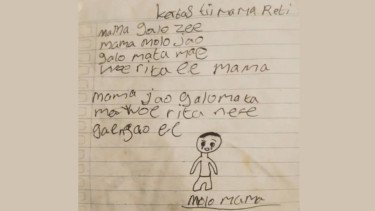 katas tii mama Roti
mama galo zee
mama molo jao
galo mata mae
woe rita ee mama
mama jao galo mata
ma woe rita nese
gaengao ee
molo mama